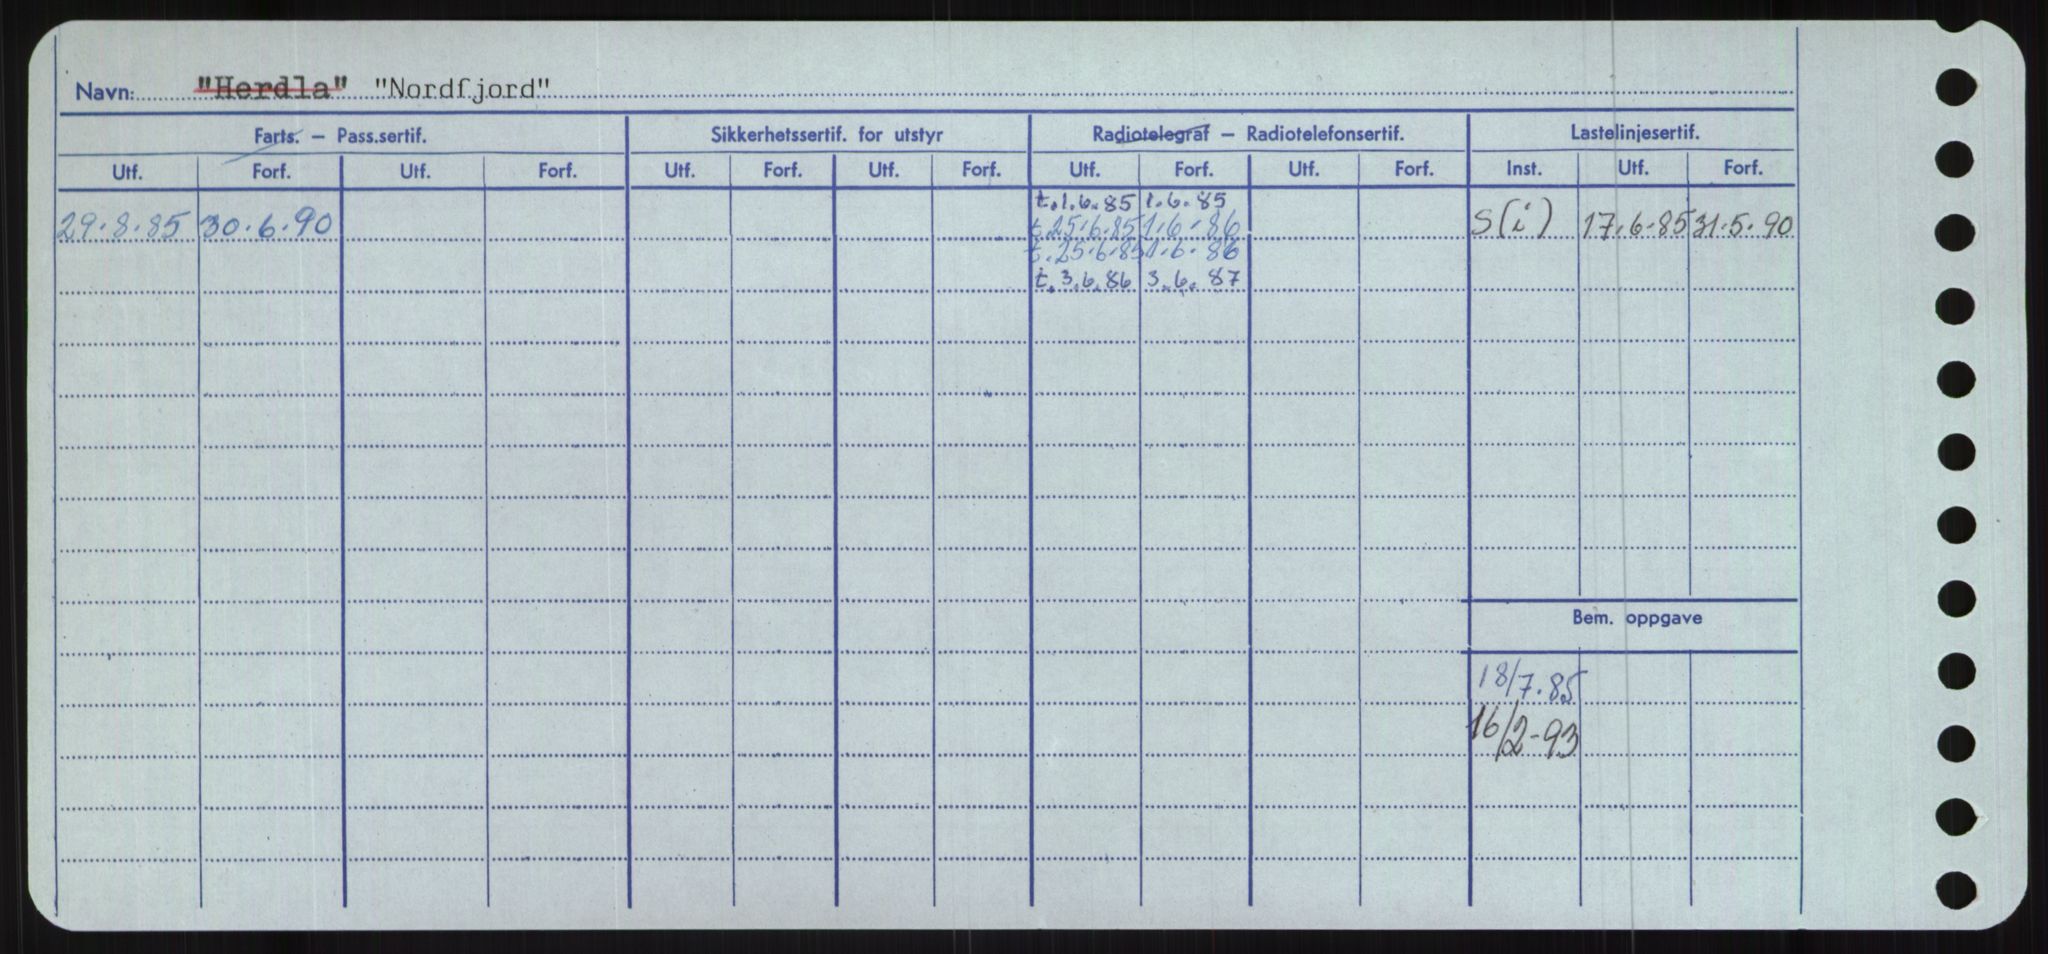 Navn: "Herdla" "Nordfjord"
Farts. – Pass.sertif. Sikkerhetssertif. for utstyr Radiotelegraf – Radiotelefonsertif. Lastelinjesertif.
Utf. Forf. Utf. Forf. Utf. Forf. Utf. Forf. Utf. Forf. Utf. Forf. Inst. Utf. Forf.
t.1.6.85 1.6.85
29.8.85 30.6.90 t.25.6.85 1.6.86 S(i) 17.6.85 31.5.90
t.25.6.85 1.6.86
t.3.6.86 3.6.87
Bem. oppgave
18/7.85
16/2-93